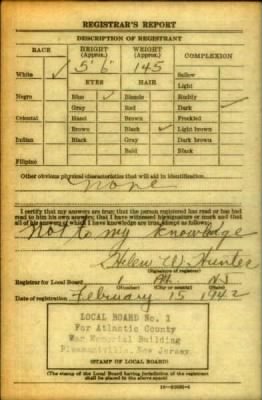 REGISTRAR'S REPORT
DESCRIPTION OF REGISTRANT
RACE HEIGHT (Approx.) WEIGHT (Approx.) COMPLEXION
5' 6" 145
White ✓ Sallow
EYES HAIR Light
Negro Blue ✓ Blonde Ruddy
Gray Red Dark ✓
Oriental Hazel Brown Freckled
Brown Black ✓ Light brown
Indian Black Gray Dark brown
Bald Black
Filipino
Other obvious physical characteristics that will aid in identification
none
I certify that my answers are true; that the person registered has read or has had
read to him his own answers; that I have witnessed his signature or mark and that
all of his answers of which I have knowledge are true, except as follows:
Not to my knowledge
Helen W. Hunter
(Signature of registrar)
Registrar for Local Board Atl. N J
(Number) (City or county) (State)
Date of registration February 15 1942
LOCAL BOARD No. 1
For Atlantic County
War Memorial Building
Pleasantville, New Jersey
STAMP OF LOCAL BOARD
(The stamp of the Local Board having jurisdiction of the registrant
shall be placed in the above space.)